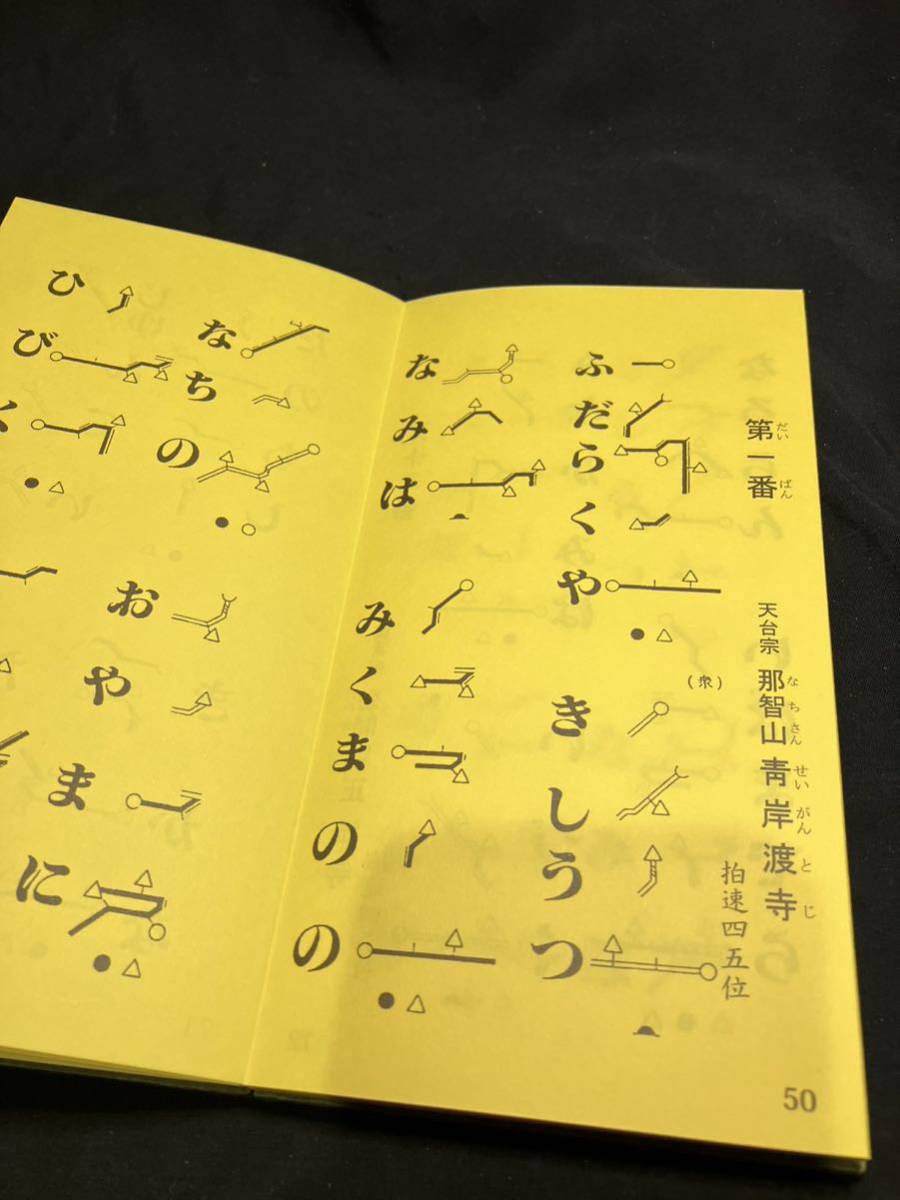 第一番
だいばん
天台宗 那智山 青岸渡寺
なちさん せいがんとじ
拍速四五位
ふだらくや
(衆)
きしうつ
なみは
みくまのの
なちの
おやまに
ひびく
50